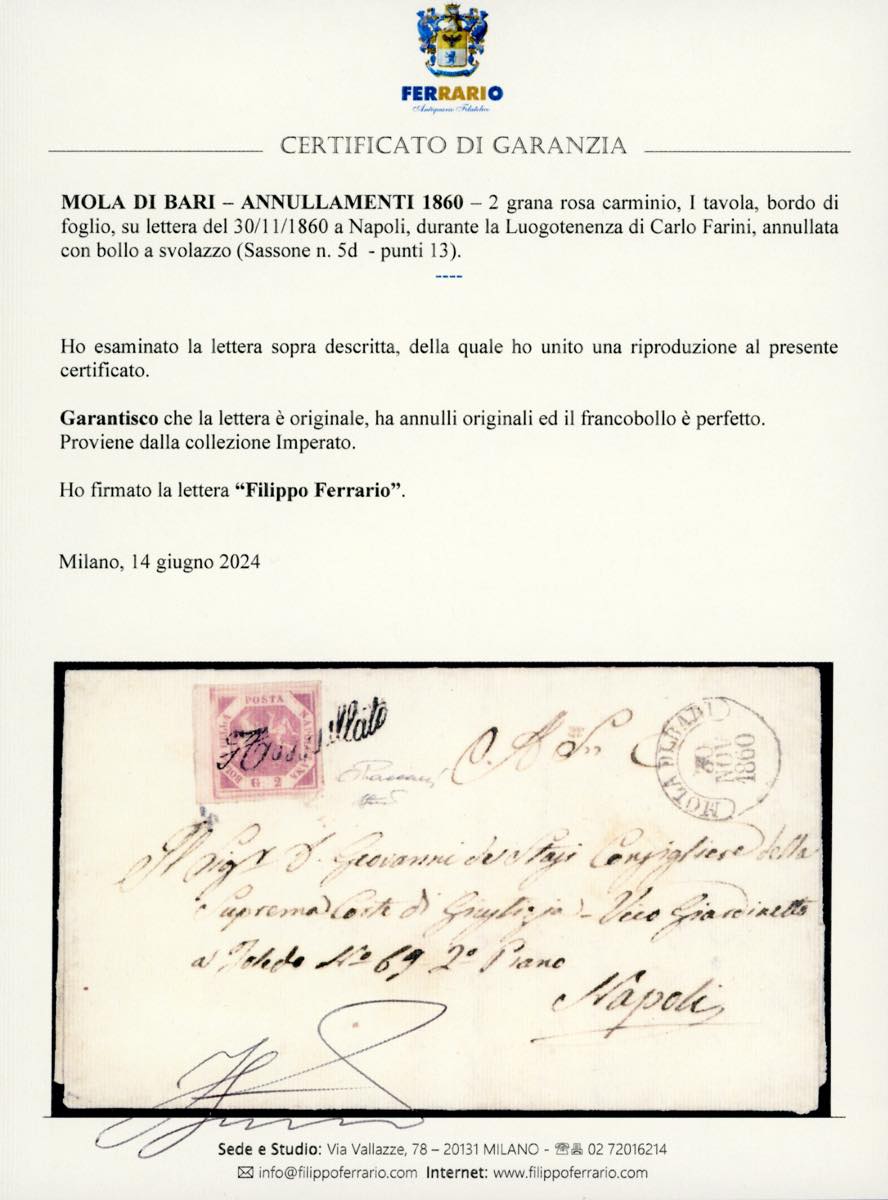 FERRARIO
Antiquario Filatelico
CERTIFICATO DI GARANZIA
MOLA DI BARI – ANNULLAMENTI 1860 – 2 grana rosa carminio, I tavola, bordo di
foglio, su lettera del 30/11/1860 a Napoli, durante la Luogotenenza di Carlo Farini, annullata
con bollo a svolazzo (Sassone n. 5d - punti 13).
----
Ho esaminato la lettera sopra descritta, della quale ho unito una riproduzione al presente
certificato.
Garantisco che la lettera è originale, ha annulli originali ed il francobollo è perfetto.
Proviene dalla collezione Imperato.
Ho firmato la lettera “Filippo Ferrario”.
Milano, 14 giugno 2024
POSTA
BOLLO DELLA
NAPOLETANA
G 2
Annullato
MOLA DI BARI
30
NOV
1860
Il Sigr D. Giovanni de Stasi Consigliere della
Suprema Corte di Giustizia - Vico Giardinetto
a Toledo No 69 2o Piano
Napoli
Sede e Studio: Via Vallazze, 78 – 20131 MILANO - ☏ 02 72016214
✉ info@filippoferrario.com Internet: www.filippoferrario.com